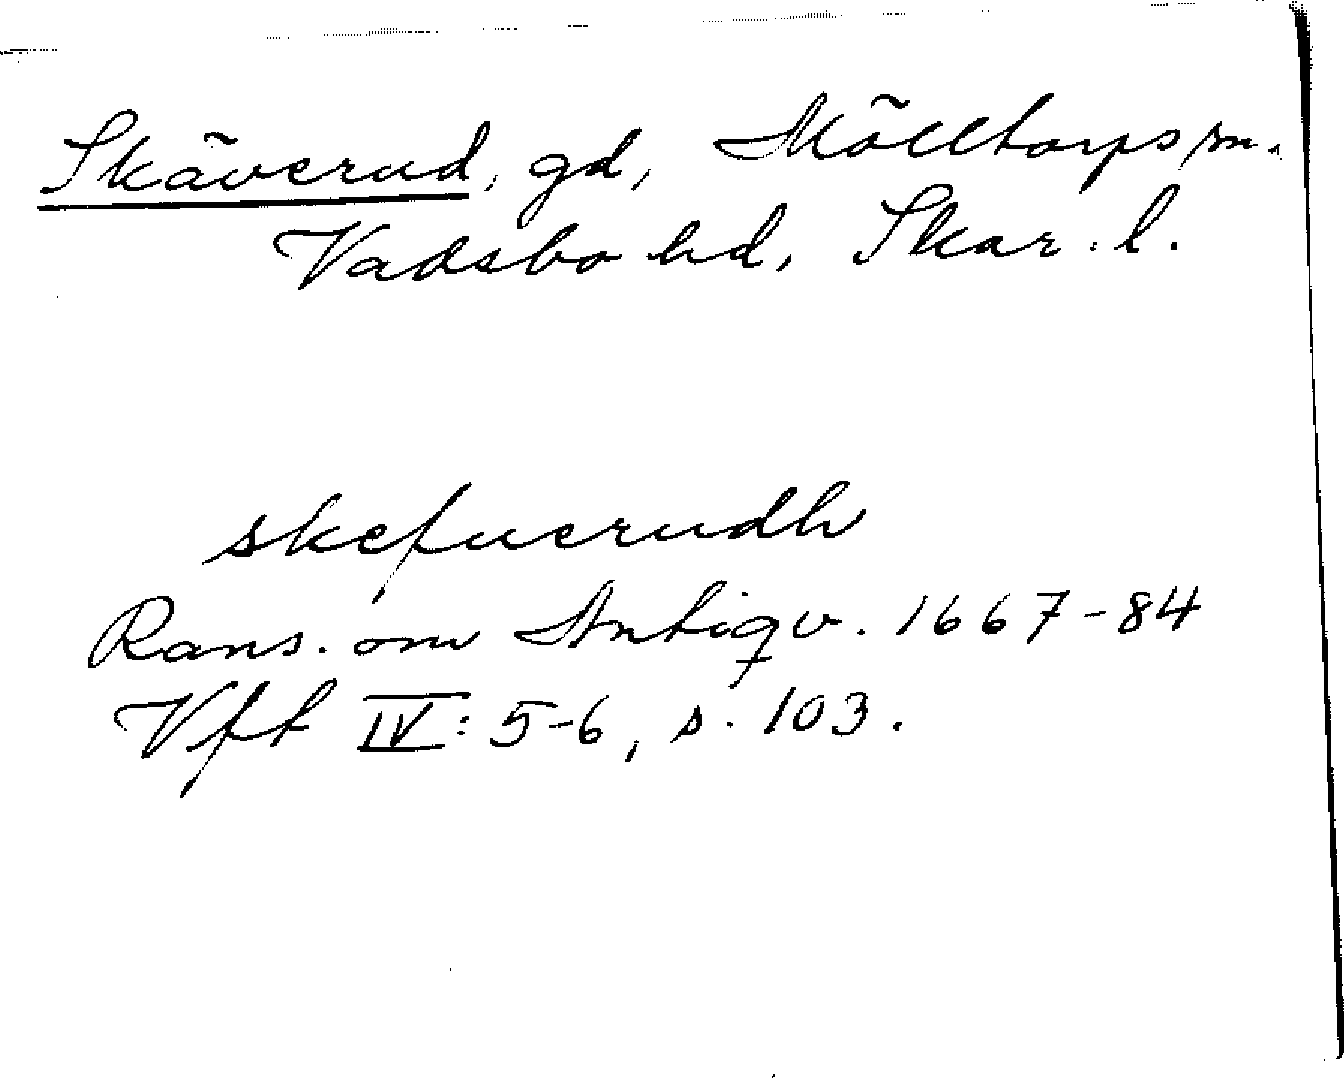 Skäverud, gd, Mölltorps sn.
Vadsbo hd, Skar. l.
skefuerudh
Rans. om Antiqv. 1667-84
Vft IV: 5-6, s. 103.